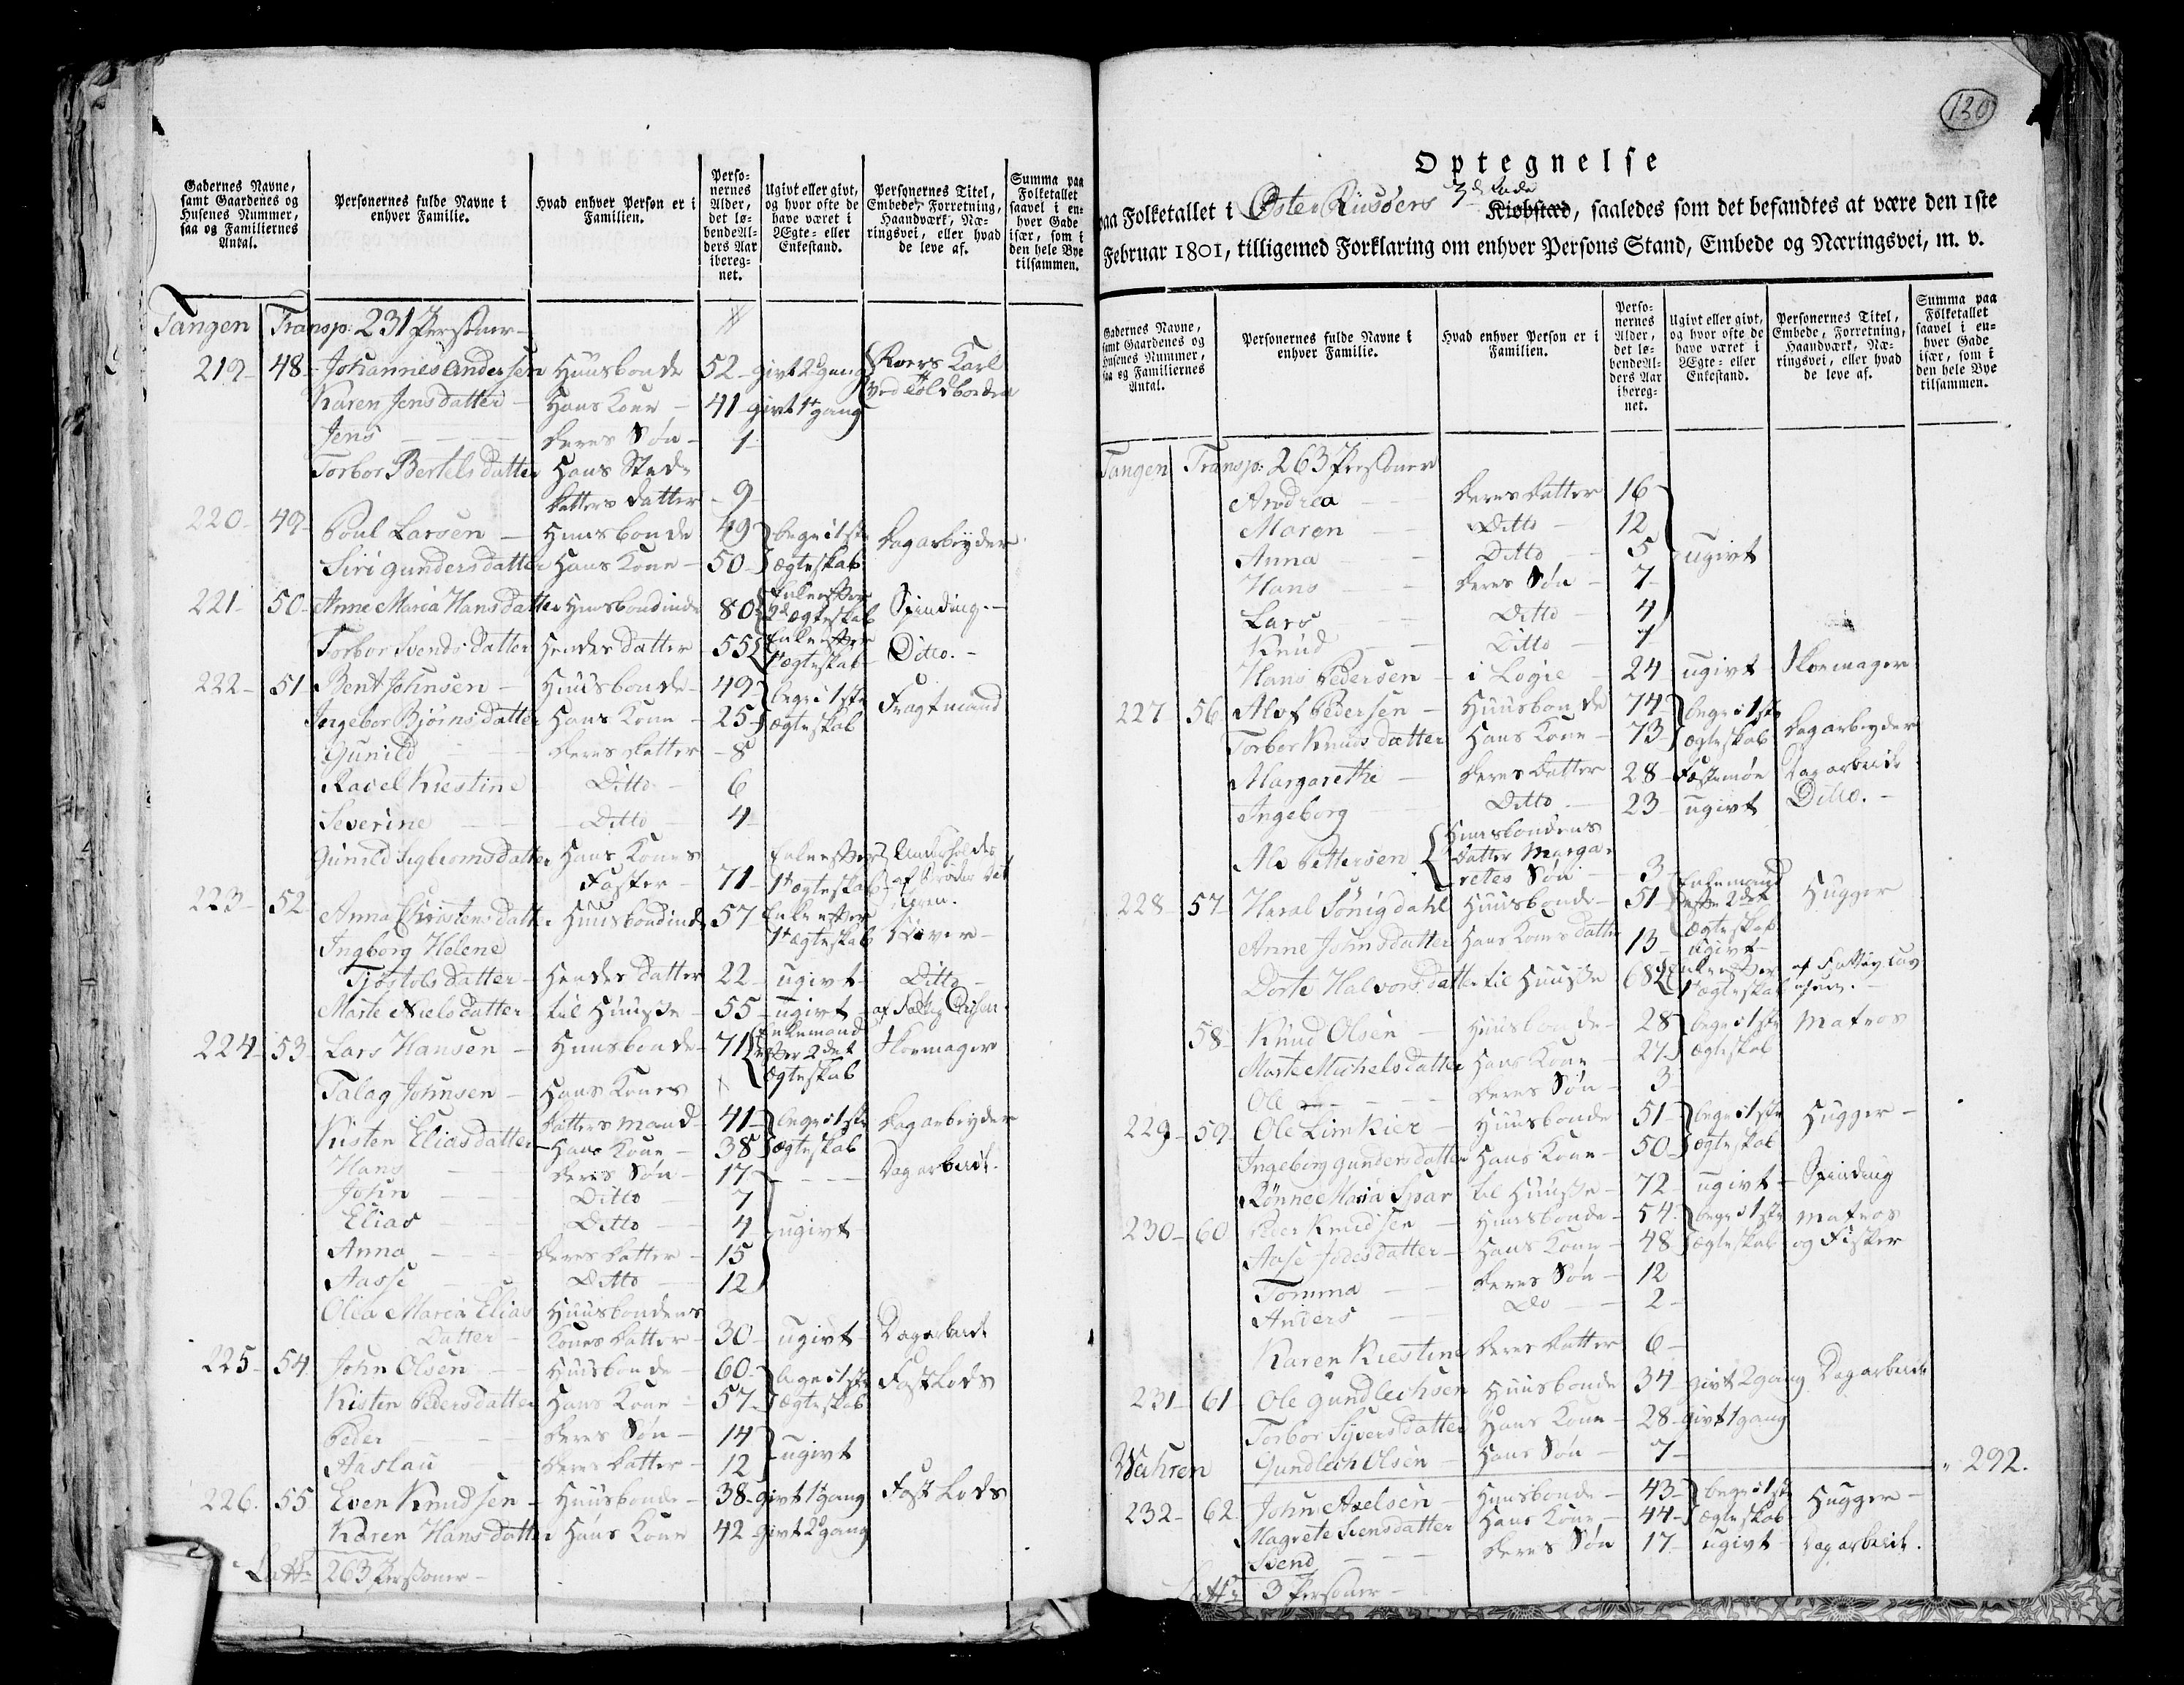 Gadernes Navne, samt Gaardenes og Husenes Nummer, saa og Familiernes Antal.
Personernes fulde Navne i enhver Familie.
Hvad enhver Person er i Familien.
Personernes Alder, det løbende Alders Aar iberegnet.
Ugivt eller givt, og hvor ofte de have været i Ægte- eller Enkestand.
Personernes Titel, Embede, Forretning, Haandværk, Næringsvei, eller hvad de leve af.
Summa paa Folketallet saavel i enhver Gade især, som i den hele Bye tilsammen.
Tangen Transp: 231 Personer
219 48 Johannes Andersen Huusbonde 52 givt 2 gang Roers Karl
Karen Jensdatter Hans Kone 41 givt 1 gang ved Toldboden
Jens deres Søn 1
Torbor Bertelsdatter Hans Sted-
datters datter 9
220 49 Poul Larsen Huusbonde 49 begge i 1ste Dagarbeyder
Siri Gundersdatter Hans Kone 50 ægteskab
221 50 Anne Maria Hansdatter Huusbondinde 80 Enke efter ægteskab Spinding
Torbor Svendsdatter Hendes datter 55 Enke efter 1t ægteskab Ditto
222 51 Bent Johnsen Huusbonde 49 begge i 1ste Fragtmand
Ingebor Bjørnsdatter Hans Kone 25 ægteskab
Gunild deres datter 8
Ravel Kiestine Ditto 6
Severine Ditto 4
Gunild Sigbiornsdatter Hans Kones
Faster 71 Enke efter 1t ægteskab
223 52 Anna Christensdatter Huusbondinde 57 Enke efter 1t ægteskab
Ingborg Helene
Tjøstolsdatter Hendes datter 22 ugivt Ditto
Marte Nielsdatter til Huuse 55 ugivt
224 53 Lars Hansen Huusbonde 71 Enkemand efter 2det ægteskab Skoemager
Talag Johnsen Hans Kones
datters mand 41 begge i 1ste Dagarbeyder
Kisten Eliasdatter Hans Kone 38 ægteskab
Hans deres Søn 17 Dagarbeide
John Ditto 7
Elias Ditto 4 ugivt
Anna deres datter 15
Aasse Ditto 12
Olea Maria Elias Huusbondens
Datter Kones datter 30 ugivt Dagarbeide
225 54 John Olsen Huusbonde 60 begge i 1ste Fast Lods
Kisten Pedersdatter Hans Kone 57 ægteskab
Peder deres Søn 14 ugivt
Aaslau deres datter 12
226 55 Even Knudsen Huusbonde 38 givt 1 gang Fast Lods
Karen Hansdatter Hans Kone 42 givt 2 gang
Latt. 263 Personer
130
Optegnelse
paa Folketallet i Øster Riisøers 3de Rode Kiøbstæd, saaledes som det befandtes at være den 1ste
Februar 1801, tilligemed Forklaring om enhver Persons Stand, Embede og Næringsvei, m. v.
Gadernes Navne, samt Gaardenes og Husenes Nummer, saa og Familiernes Antal.
Personernes fulde Navne i enhver Familie.
Hvad enhver Person er i Familien.
Personernes Alder, det løbende Alders Aar iberegnet.
Ugivt eller givt, og hvor ofte de have været i Ægte- eller Enkestand.
Personernes Titel, Embede, Forretning, Haandværk, Næringsvei, eller hvad de leve af.
Summa paa Folketallet saavel i enhver Gade især, som i den hele Bye tilsammen.
Tangen Transp: 263 Personer
Andrea deres datter 16
Maren Ditto 12
Anna Ditto 5 ugivt
Hans deres Søn 7
Lars Ditto 4
Knud Ditto 1
Hans Pedersen i Logie 24 ugivt Skoemager
227 56 Alof Pedersen Huusbonde 74 begge i 1ste Dagarbeyder
Torbor Knudsdatter Hans Kone 73 ægteskab
Margarethe deres datter 28 Fæstemøe Dagarbeide
Ingeborg Ditto 23 ugivt Ditto
Ale Pettersen Huusbondens
datter Marga-
retes Søn 3
228 57 Haral Sönigdahl Huusbonde 51 Enkemand efter 2det ægteskab Hugger
Anne Johnsdatter Hans Kones datter 13 ugivt
Dorte Halvorsdatter til Huuse 68 Enke efter 1t ægteskab
58 Knud Olsen Huusbonde 28 begge i 1ste Matros
Marte Michelsdatter Hans Kone 27 ægteskab
Ole deres Søn 3
229 59 Ole Limkier Huusbonde 51 begge i 1ste Hugger
Ingeborg Gundersdatter Hans Kone 50 ægteskab
Rønne Maria Spar til Huuse 72 ugivt Spinding
230 60 Peer Knudsen Huusbonde 54 begge i 1ste Matros
Aase Jodesdatter Hans Kone 48 ægteskab og Fisker
Tomma deres Søn 12
Anders Do 2
Karen Kiestine deres datter 6
231 61 Ole Gundlechsen Huusbonde 34 givt 2 gang Dagarbeide
Torbor Sÿversdatter Hans Kone 28 givt 1 gang
Gundlech Olsen Hans Søn 7
Wahren 292.
232 62 John Axelsen Huusbonde 43 begge i 1ste Hugger
Magrete Svensdatter Hans Kone 44 ægteskab
Svend deres Søn 17 ugivt Dagarbeide.
Latt. 3 Personer